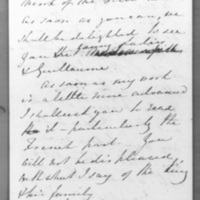 as soon as you can, we
shall be delighted to see
you the young ladies
& Guillaume.
As soon as my work
is a little more advanced
I shall ask you to read
it - particularly the
French part. You
will not be displeased
with what I say of the King
& his family